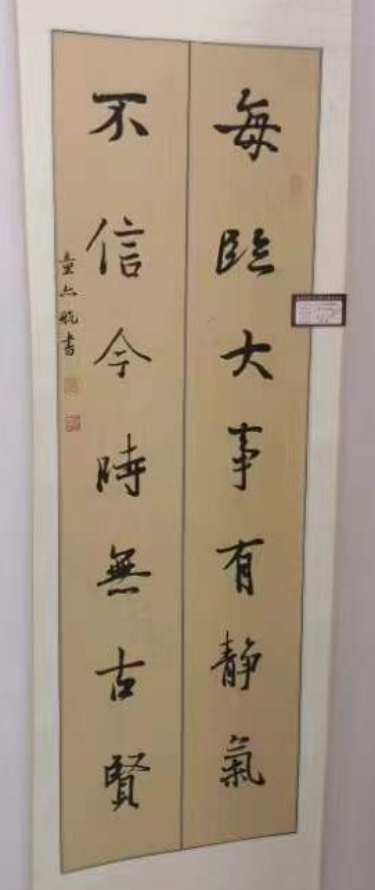 每臨大事有静氣
不信今時無古賢
童亦航書